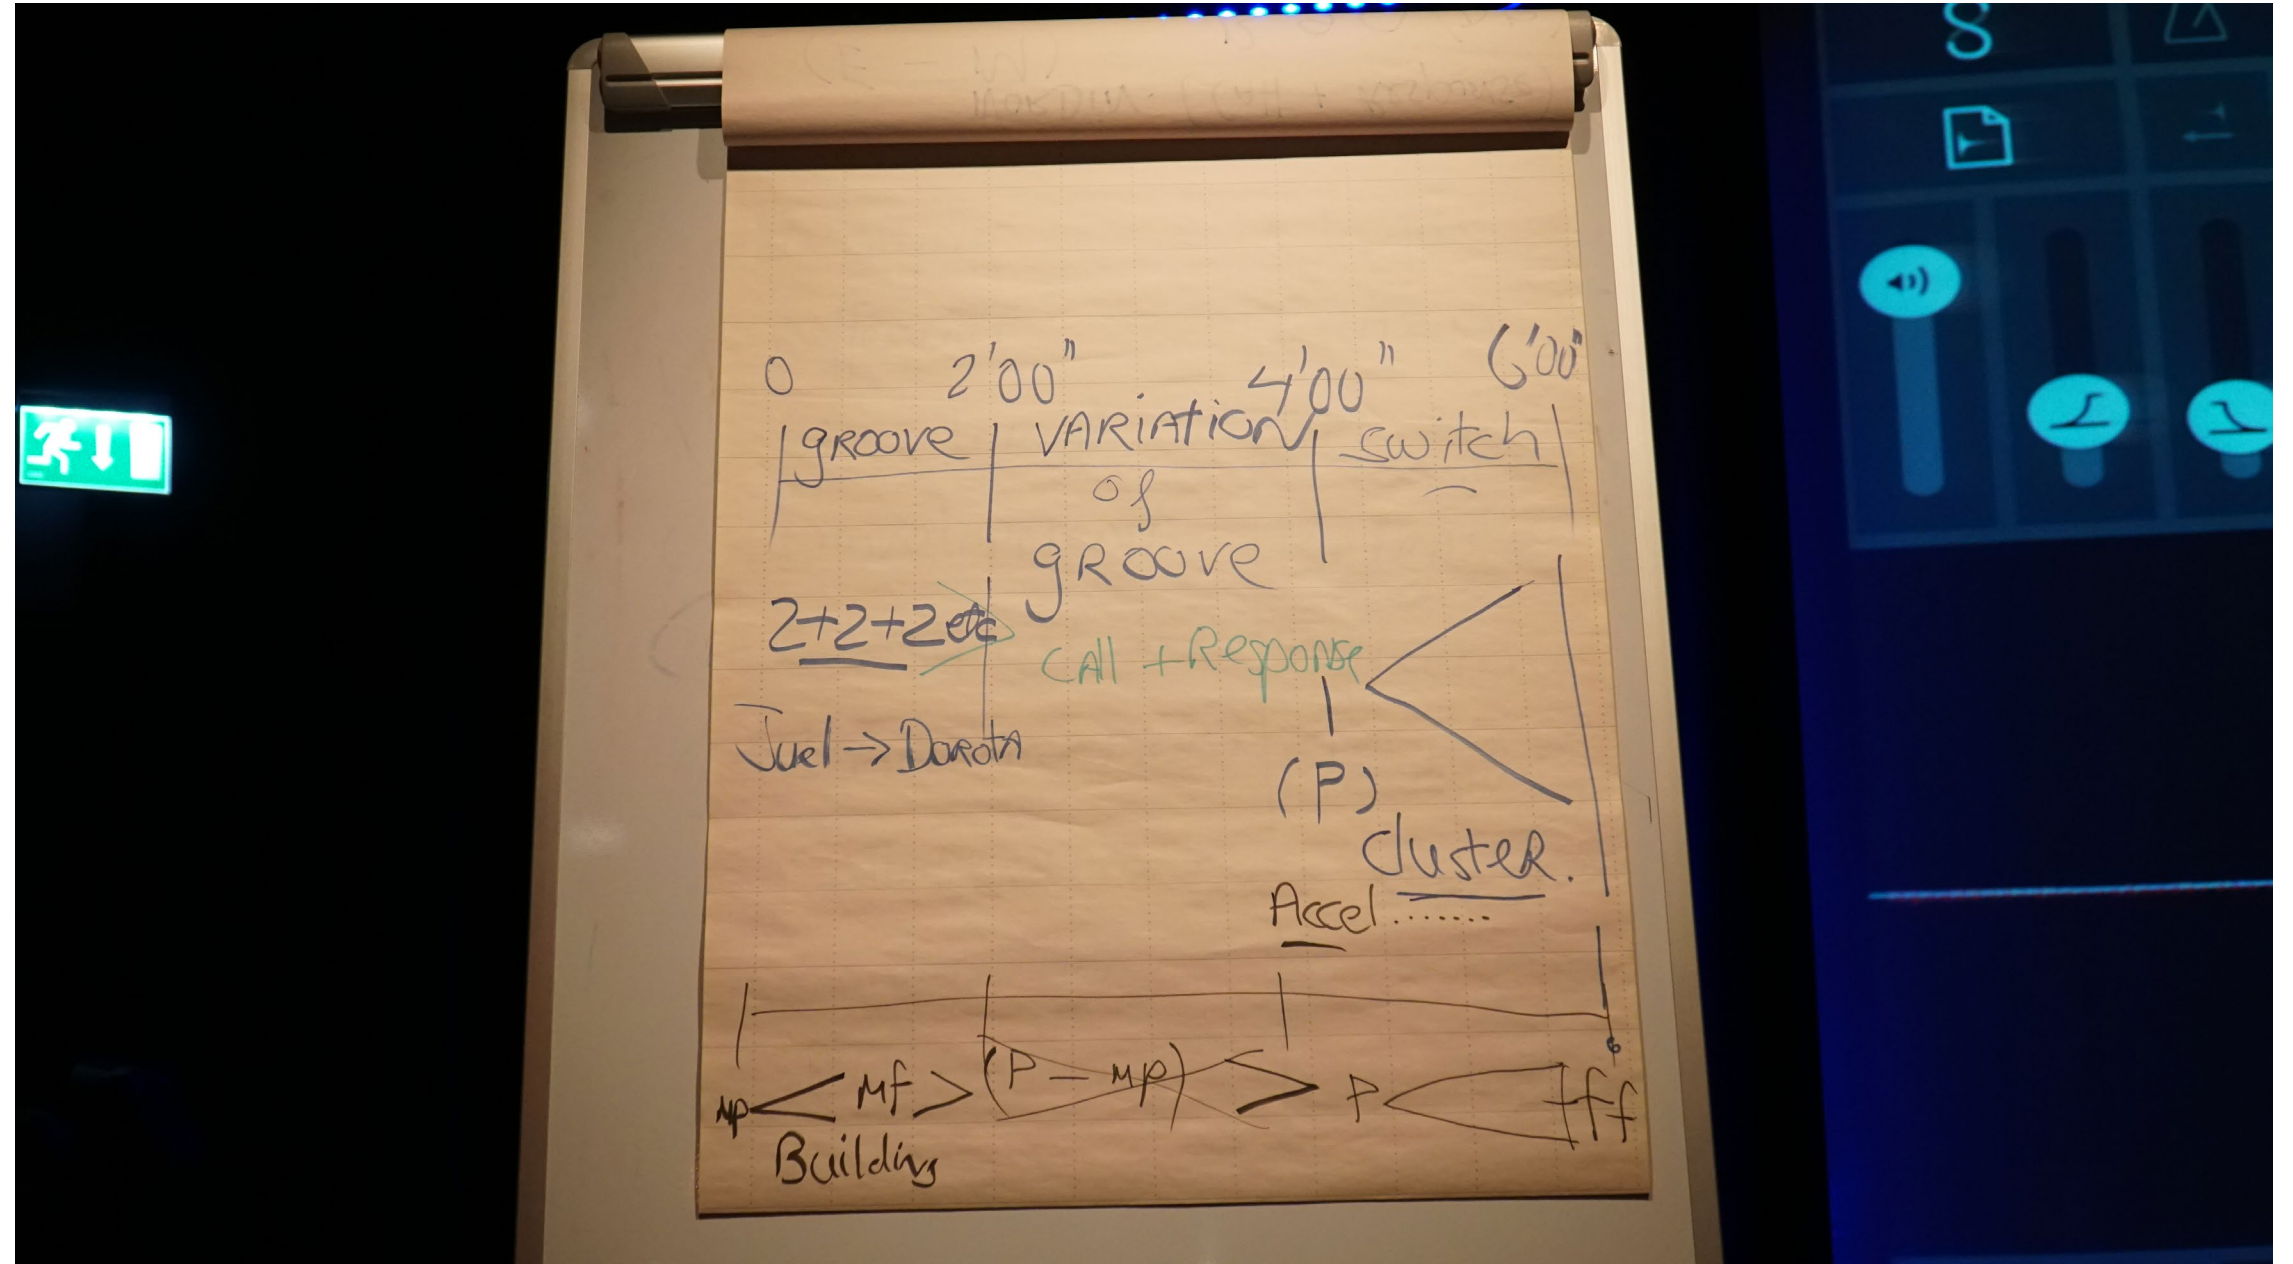 0 2'00" 4'00" 6'00"
groove VARIATION switch
of
groove
2+2+2 etc
CAll + Response
Juel → DOROTA
(P)
Cluster.
Accel.......
6
mp < Mf > (P — mp) > P < fff
Building